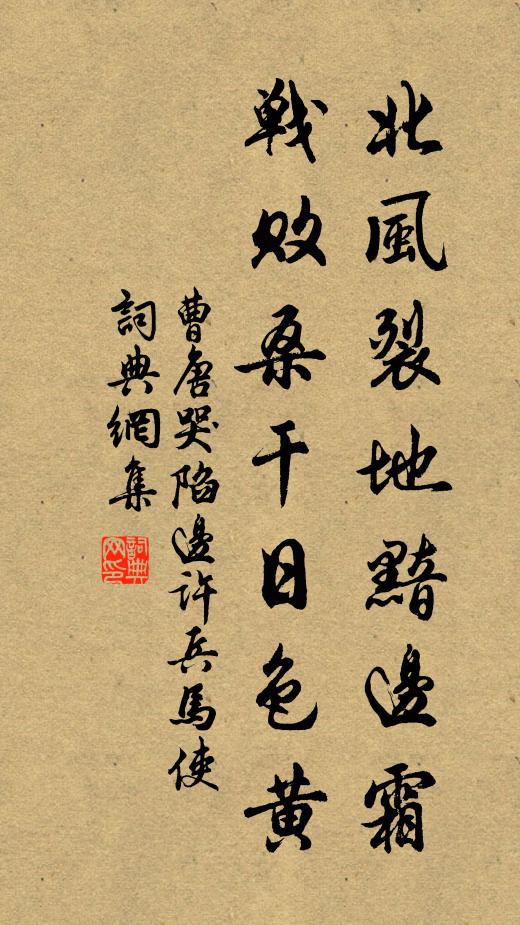 北風裂地黯邊霜
戰敗桑干日色黃
曹唐哭陷邊許兵馬使
詞典網集
詞典网印